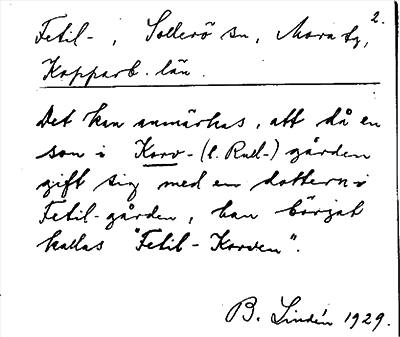 2.
Fetil-, Sollerö sn, Mora tg,
Kopparb. län.
Det kan anmärkas, att då en
son i Korv- (l. Rull-) gården
gift sig med en dottern i
Fetil-gården, han börjat
kallas "Fetil-Korven".
B. Lindén 1929.